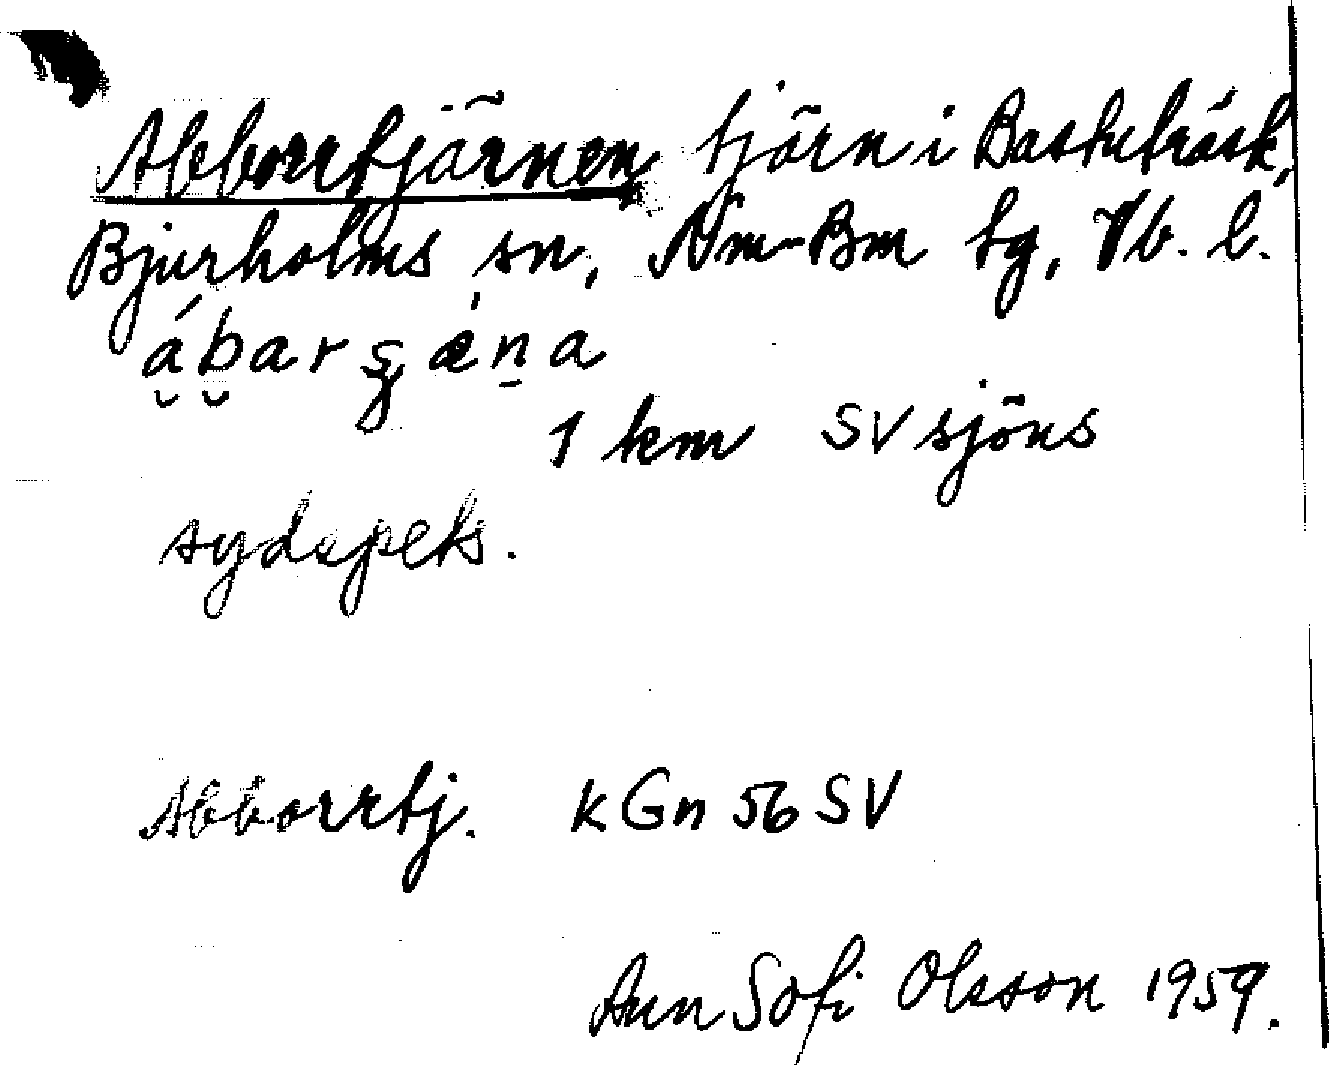 Abborrtjärnen tjärn i Bastuträsk,
Bjurholms sn, Nm-Bm tg, Vb. l.
1 km SV sjöns
sydspets.
Abborrtj. kGn 56 SV
Ann Sofi Olsson 1959.